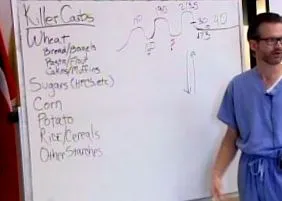 Killer Carbs
Wheat
Bread/Bagels
Pasta/Flour
Cakes/Muffins
Sugars (HFCS, etc)
Corn
Potato
Rice/Cereals
Other Starches
40